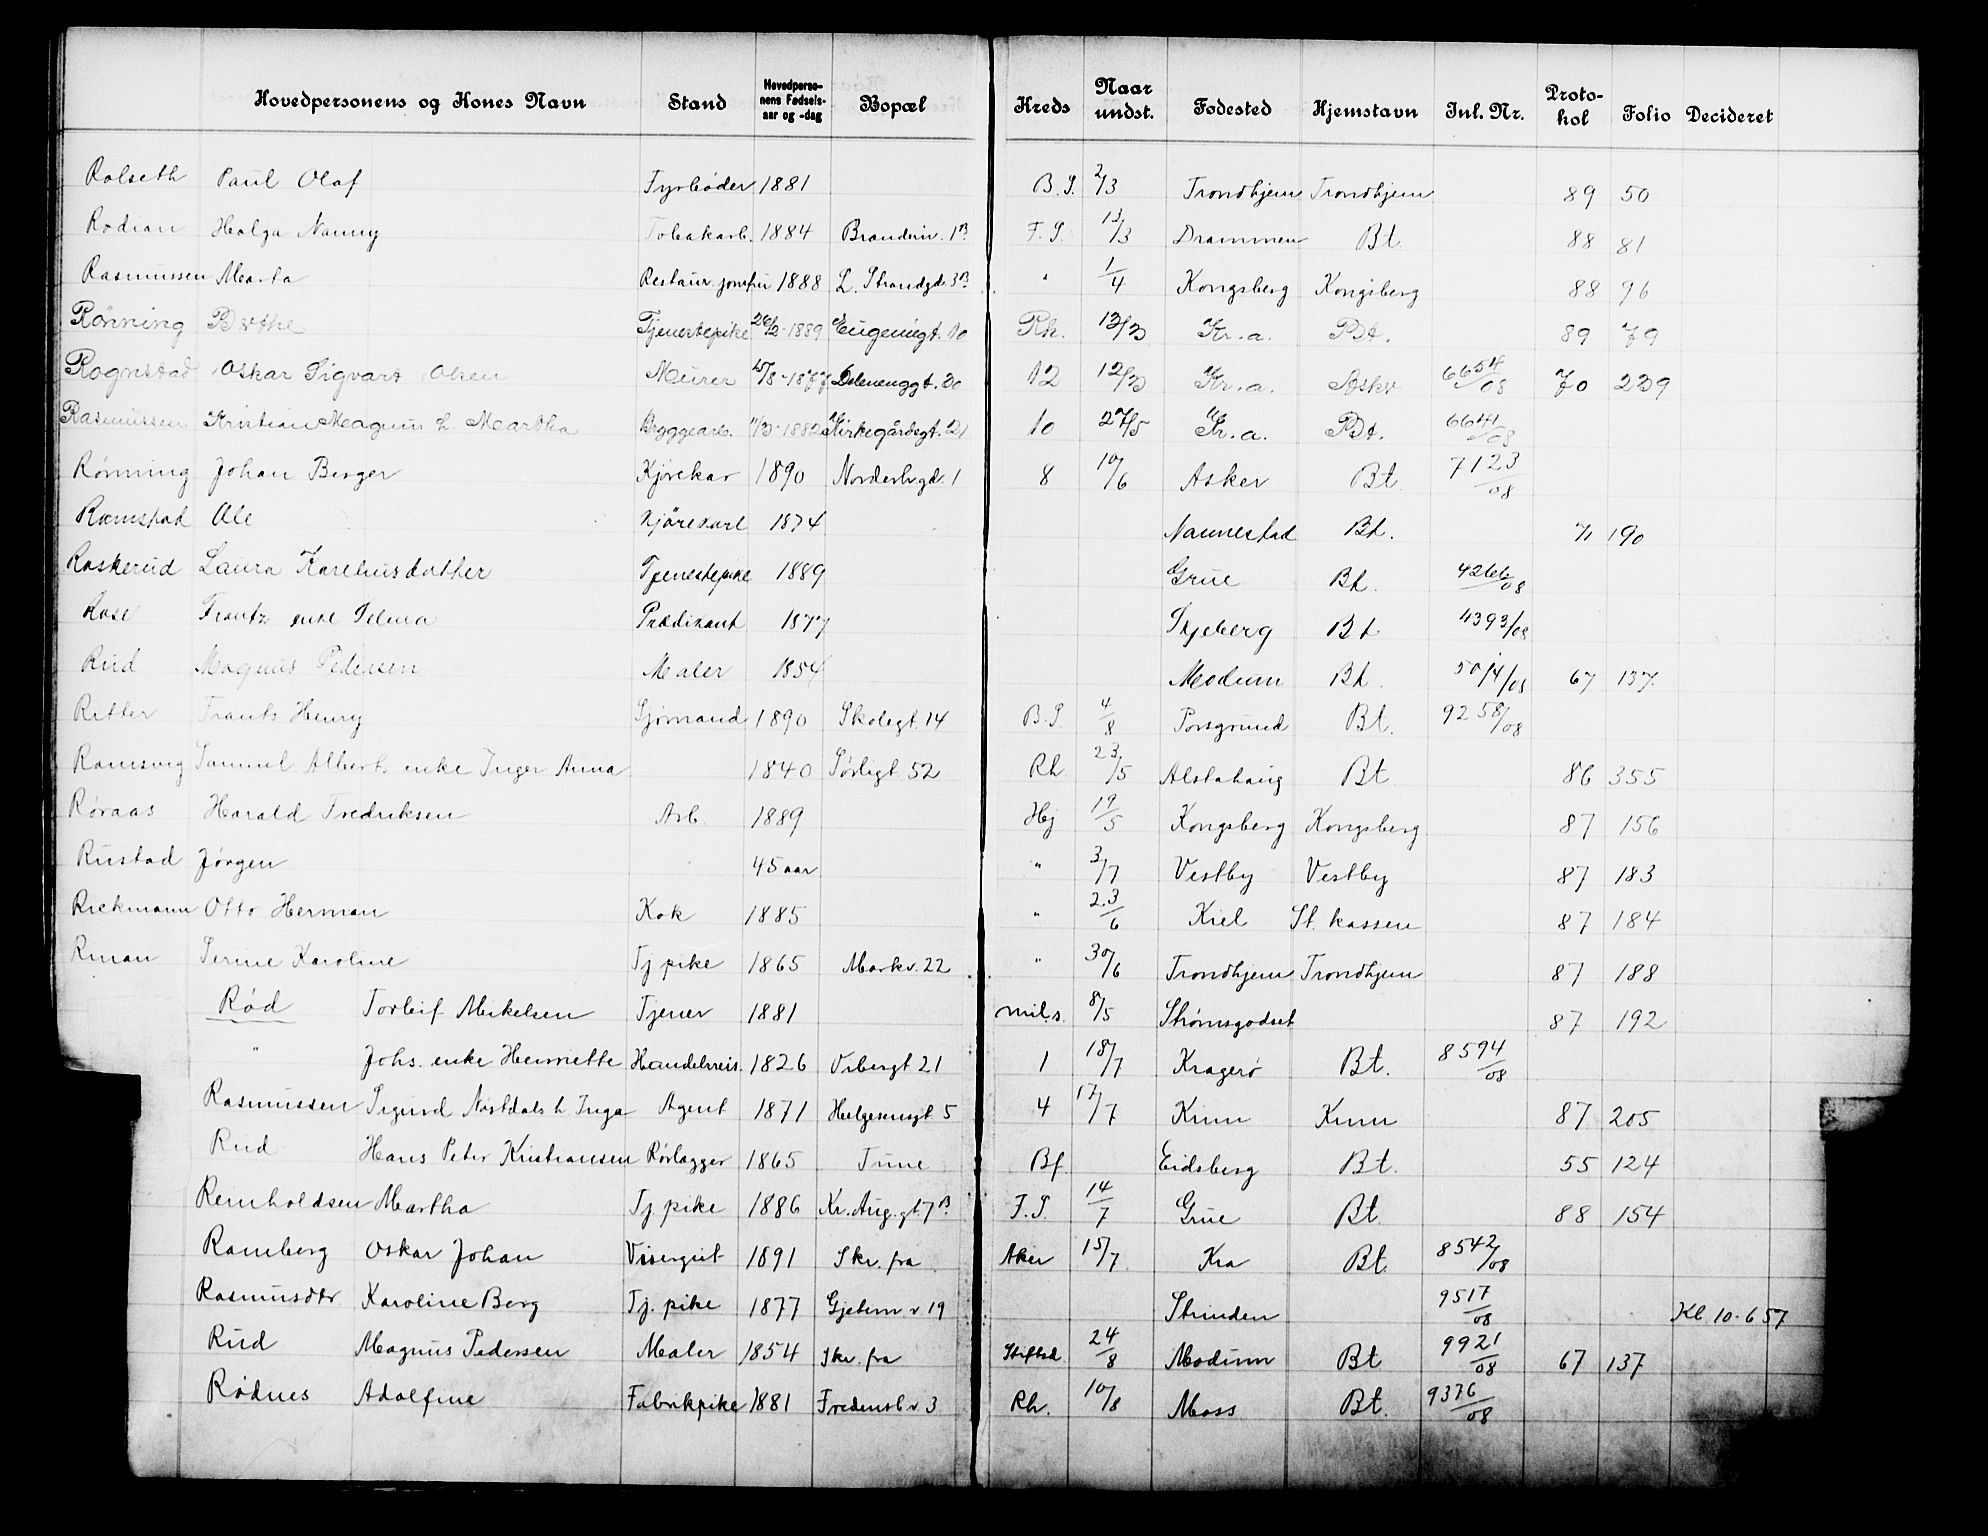 Hovedpersonens og Kones Navn | Stand | Hovedpersonens Fødselsaar og -dag | Bopæl | Kreds | Naar undst. | Fødested | Hjemstavn | Inl. Nr. | Protokol | Folio | Decideret
Rolseth Paul Olaf | Fyrbøder | 1881 | B.S. | 2/3 | Trondhjem | Trondhjem | 89 | 50
Rodian Helga Nanny | Tobakarb. | 1884 | 1B | F.S. | 13/3 | Drammen | Bt. | 88 | 81
Rasmussen Marta | Restaur. jomfru | 1888 | L. Strandgd. 3B | " | 1/4 | Kongsberg | Kongsberg | 88 | 96
Rönning Berthe | Tjenestepike | 26/2-1889 | Eugeniegt. 10 | Rh. | 13/3 | Kr.a. | Bt. | 89 | 79
Rognstad Oskar Sigvart Olsen | Murer | 15/8-1877 | Delenenggt. 20 | 12 | 12/3 | Kr.a. | Asker | 6654/08 | 70 | 239
Rasmussen Kristian Magnus h. Martha | Byggearb. | 11/3-1882 | Kirkegårdsgt. 21 | 10 | 27/5 | Kr.a. | Bt. | 6641/08
Rönning Johan Berger | Kjörekar | 1890 | Norderhvgd. 1 | 8 | 10/6 | Asker | Bt. | 7123/08
Ramstad Ole | Kjörekarl | 1874 | Nannestad | Bt. | 71 | 190
Raskerud Laura Kareliusdatter | Tjenestepike | 1889 | Grue | Bt. | 4266/08
Rose Frantz enke Selma | Prædikant | 1877 | Skjeberg | Bt | 4393/08
Rud Magnus Pedersen | Maler | 1854 | Modum | Bt. | 5014/08 | 67 | 137.
Ritter Frants Henry | Sjømand | 1890 | Skolegt. 14 | B.S. | 4/8 | Porsgrund | Bt. | 9258/08
Ramsvig Samuel Alberts enke Inger Anna | 1840 | Sørligt. 52 | Rh. | 23/5 | Alstahaug | Bt | 86 | 355
Røraas Harald Fredriksen | Arb. | 1889 | Hj | 19/5 | Kongsberg | Kongsberg | 87 | 156
Rustad Jørgen | 45 aar | " | 3/7 | Vestby | Vestby | 87 | 183
Riekmann Otto Herman | Kok | 1885 | " | 23/6 | Kiel | St. kassen | 87 | 184
Rman Serine Karoline | Tj pike | 1865 | Markv. 22 | " | 30/6 | Trondhjem | Trondhjem | 87 | 188
Rød Torleif Mikelsen | Tjener | 1881 | mil.s. | 8/5 | Strømsgodset | 87 | 192
" Johs. enke Henriette | Handelsreis. | 1826 | Orbergt 21 | 1 | 18/7 | Kragerø | Bt. | 8594/08
Rasmussen Sigurd Nostdals h Inga | Agent | 1871 | Helgesensgt. 5 | 4 | 17/7 | Kinn | Kinn | 87 | 205
Rud Hans Peter Kristiansen | Rørlægger | 1865 | Tune | Bf. | Eidsberg | Bt. | 55 | 124
Reinholdsen Martha | Tj pike | 1886 | Kr. Aug. gt. 7B. | F.S. | 14/7 | Grue | Bt | 88 | 154
Ramberg Oskar Johan | Visergut | 1891 | Skr. fra | Aker | 15/7 | Kra | Bt. | 8542/08
Rasmusdtr Karoline Berg | Tj. pike | 1877 | Gjetem v 19 | Strinden | 9517/08 | Kl. 10-657
Rud Magnus Pedersen | Maler | 1854 | Skr. fra | Stiftsd. | 24/8 | Modum | Bt | 9921/08 | 67 | 137
Rødnes Adolfine | Fabrikpike | 1881 | Fredensb v 3 | Rh. | 10/8 | Moss | Bt. | 9376/08